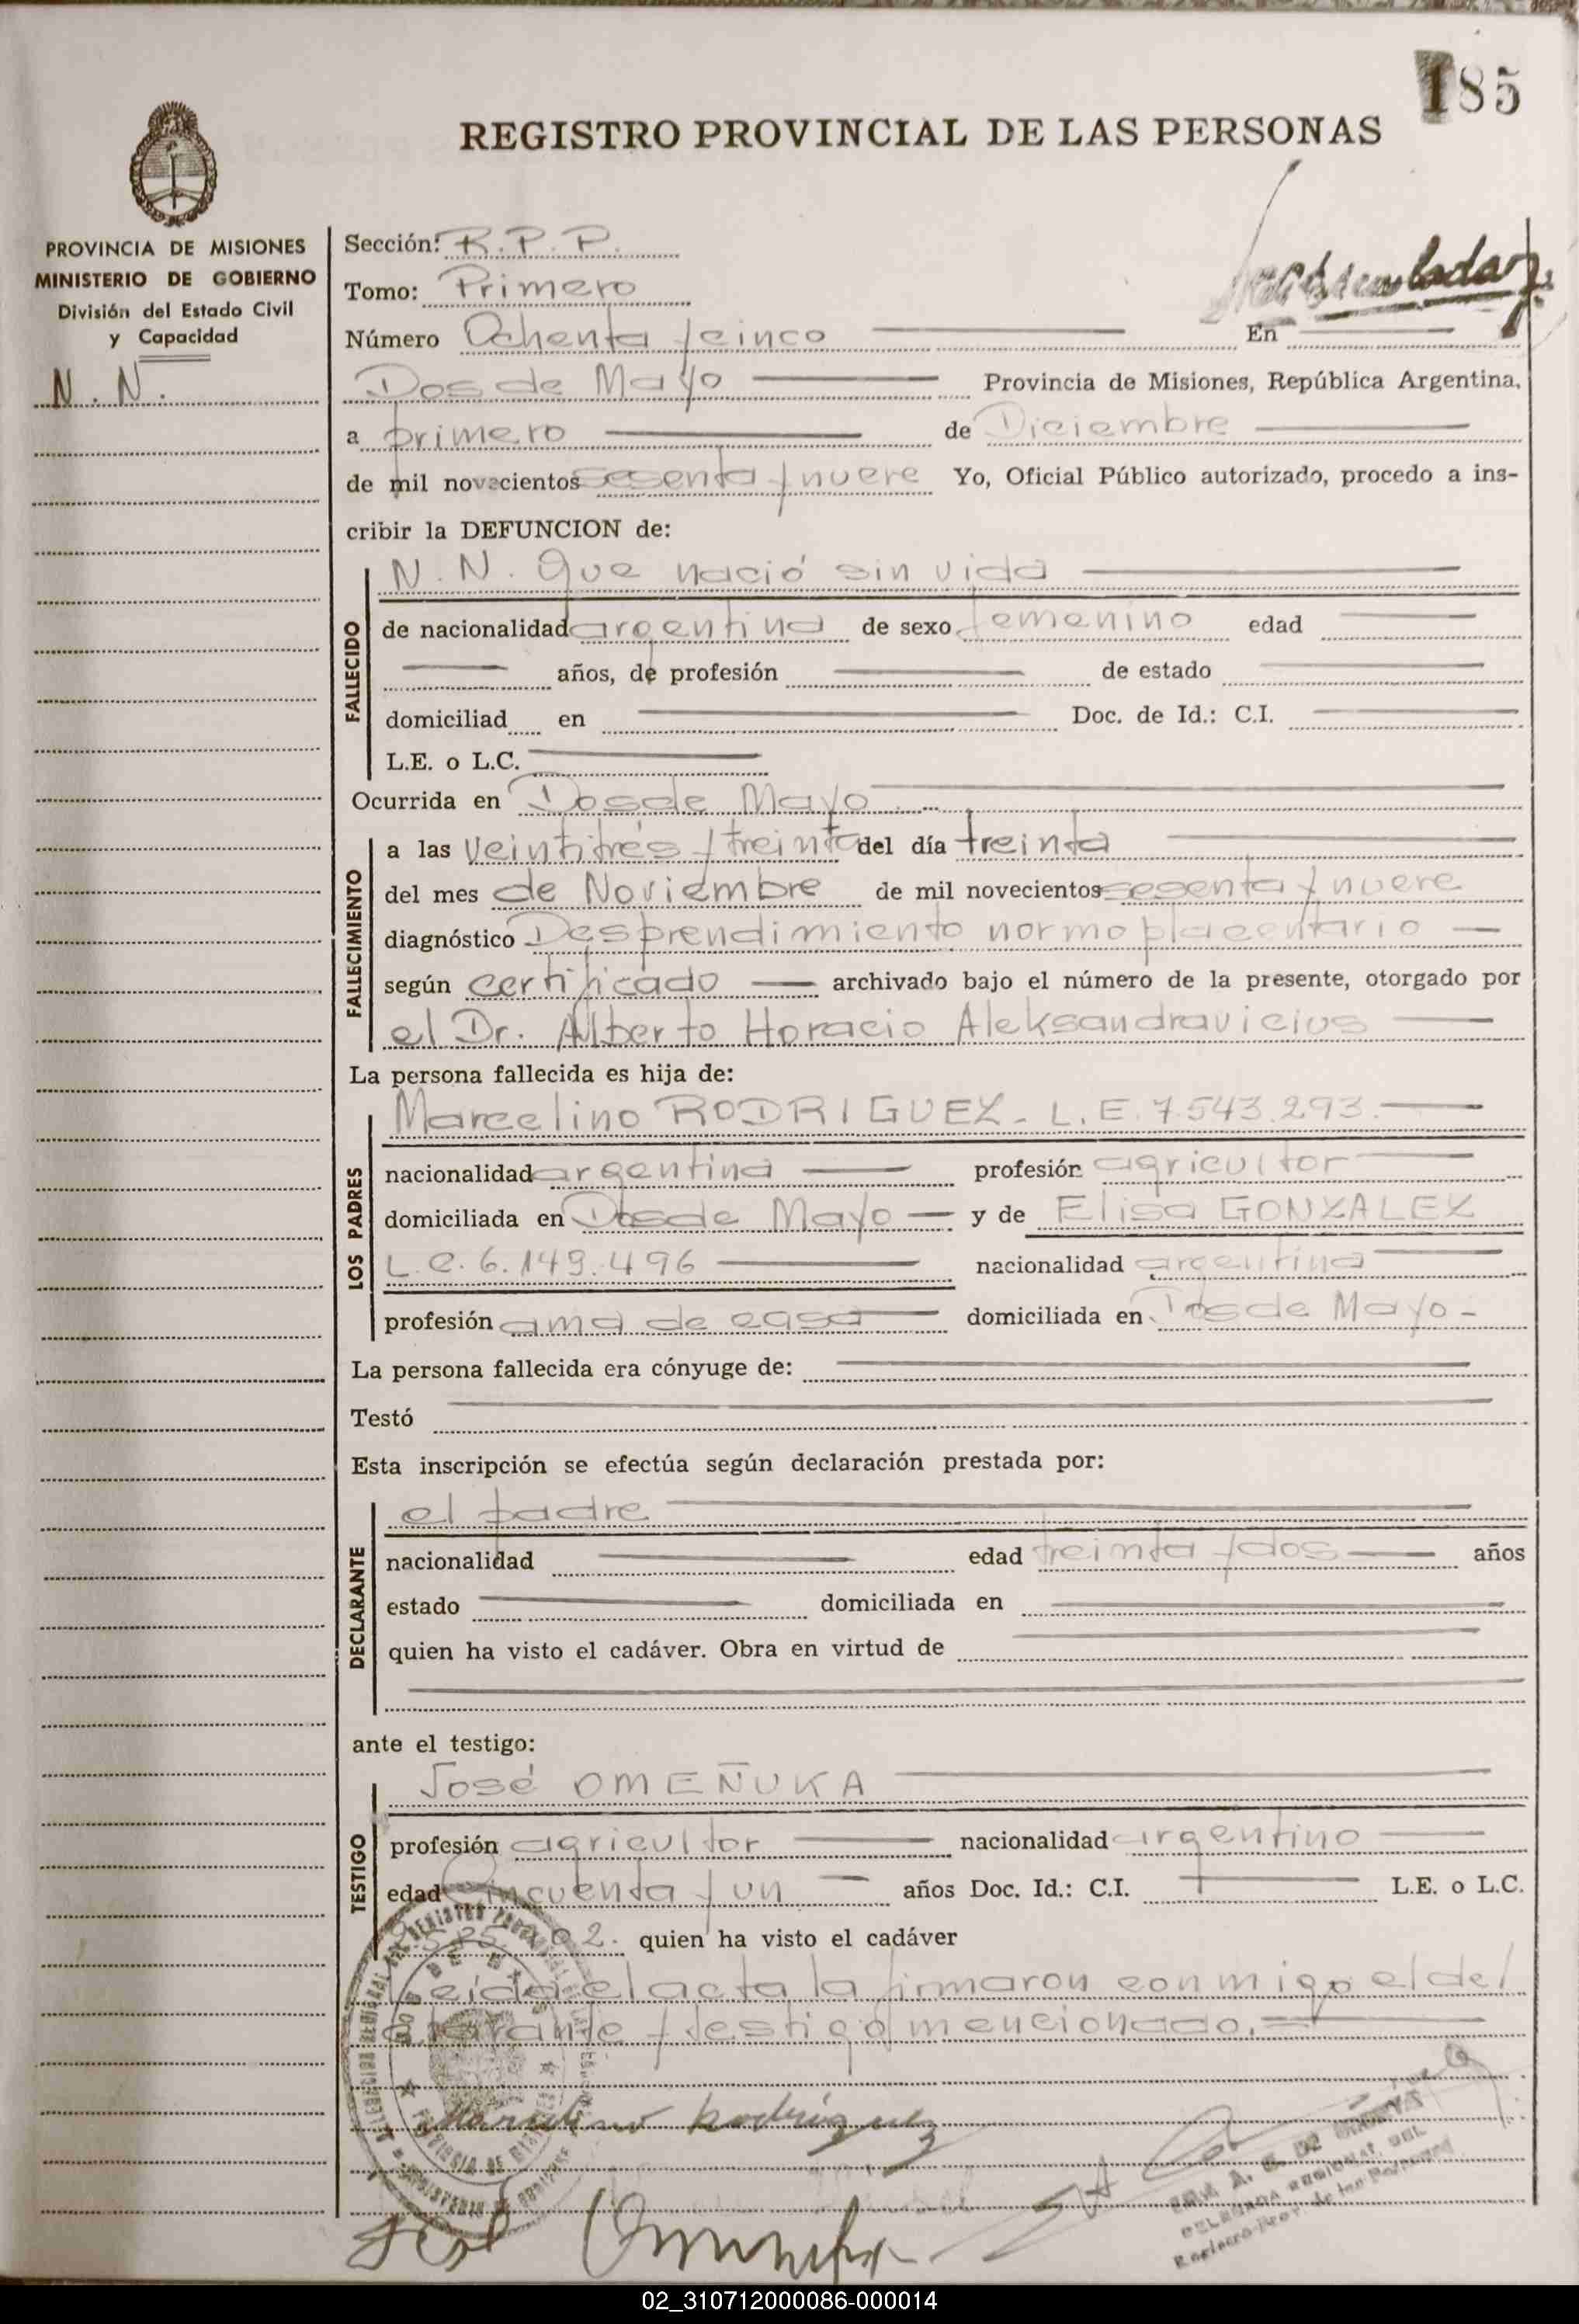 185
REGISTRO PROVINCIAL DE LAS PERSONAS
PROVINCIA DE MISIONES
MINISTERIO DE GOBIERNO
División del Estado Civil
y Capacidad
N. N.
Sección: R.P.P.
Tomo: Primero
Número Ochenta y cinco En
Dos de Mayo Provincia de Misiones, República Argentina,
a primero de Diciembre
de mil novecientos sesenta y nueve Yo, Oficial Público autorizado, procedo a ins-
cribir la DEFUNCION de:
FALLECIDO
N. N. que nació sin vida
de nacionalidad argentina de sexo femenino edad
años, de profesión de estado
domiciliad en Doc. de Id.: C.I.
L.E. o L.C.
Ocurrida en Dos de Mayo
FALLECIMIENTO
a las veintitrés y treinta del día treinta
del mes de Noviembre de mil novecientos sesenta y nueve
diagnóstico Desprendimiento normoplacentario
según certificado archivado bajo el número de la presente, otorgado por
el Dr. Alberto Horacio Aleksandravicius
La persona fallecida es hija de:
LOS PADRES
Marcelino RODRIGUEZ - L.E. 7.543.293.
nacionalidad argentina profesión agricultor
domiciliada en Dos de Mayo y de Elisa GONZALEZ
L.C. 6.149.496 nacionalidad argentina
profesión ama de casa domiciliada en Dos de Mayo -
La persona fallecida era cónyuge de:
Testó
Esta inscripción se efectúa según declaración prestada por:
DECLARANTE
el padre
nacionalidad edad treinta y dos años
estado domiciliada en
quien ha visto el cadáver. Obra en virtud de
ante el testigo:
TESTIGO
José OMEÑUKA
profesión agricultor nacionalidad argentino
edad cincuenta y un años Doc. Id.: C.I. L.E. o L.C.
quien ha visto el cadáver
Leída el acta la firmaron conmigo el del
clarante y testigo mencionado.
Marcelino Rodríguez
DELEGADA REGIONAL DEL
Registro Prov. de las Personas
02_310712000086-000014